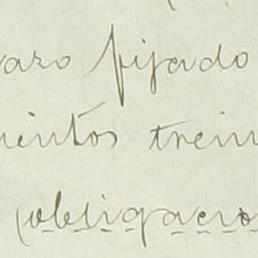 varo fijado
cientos trein
obligacio